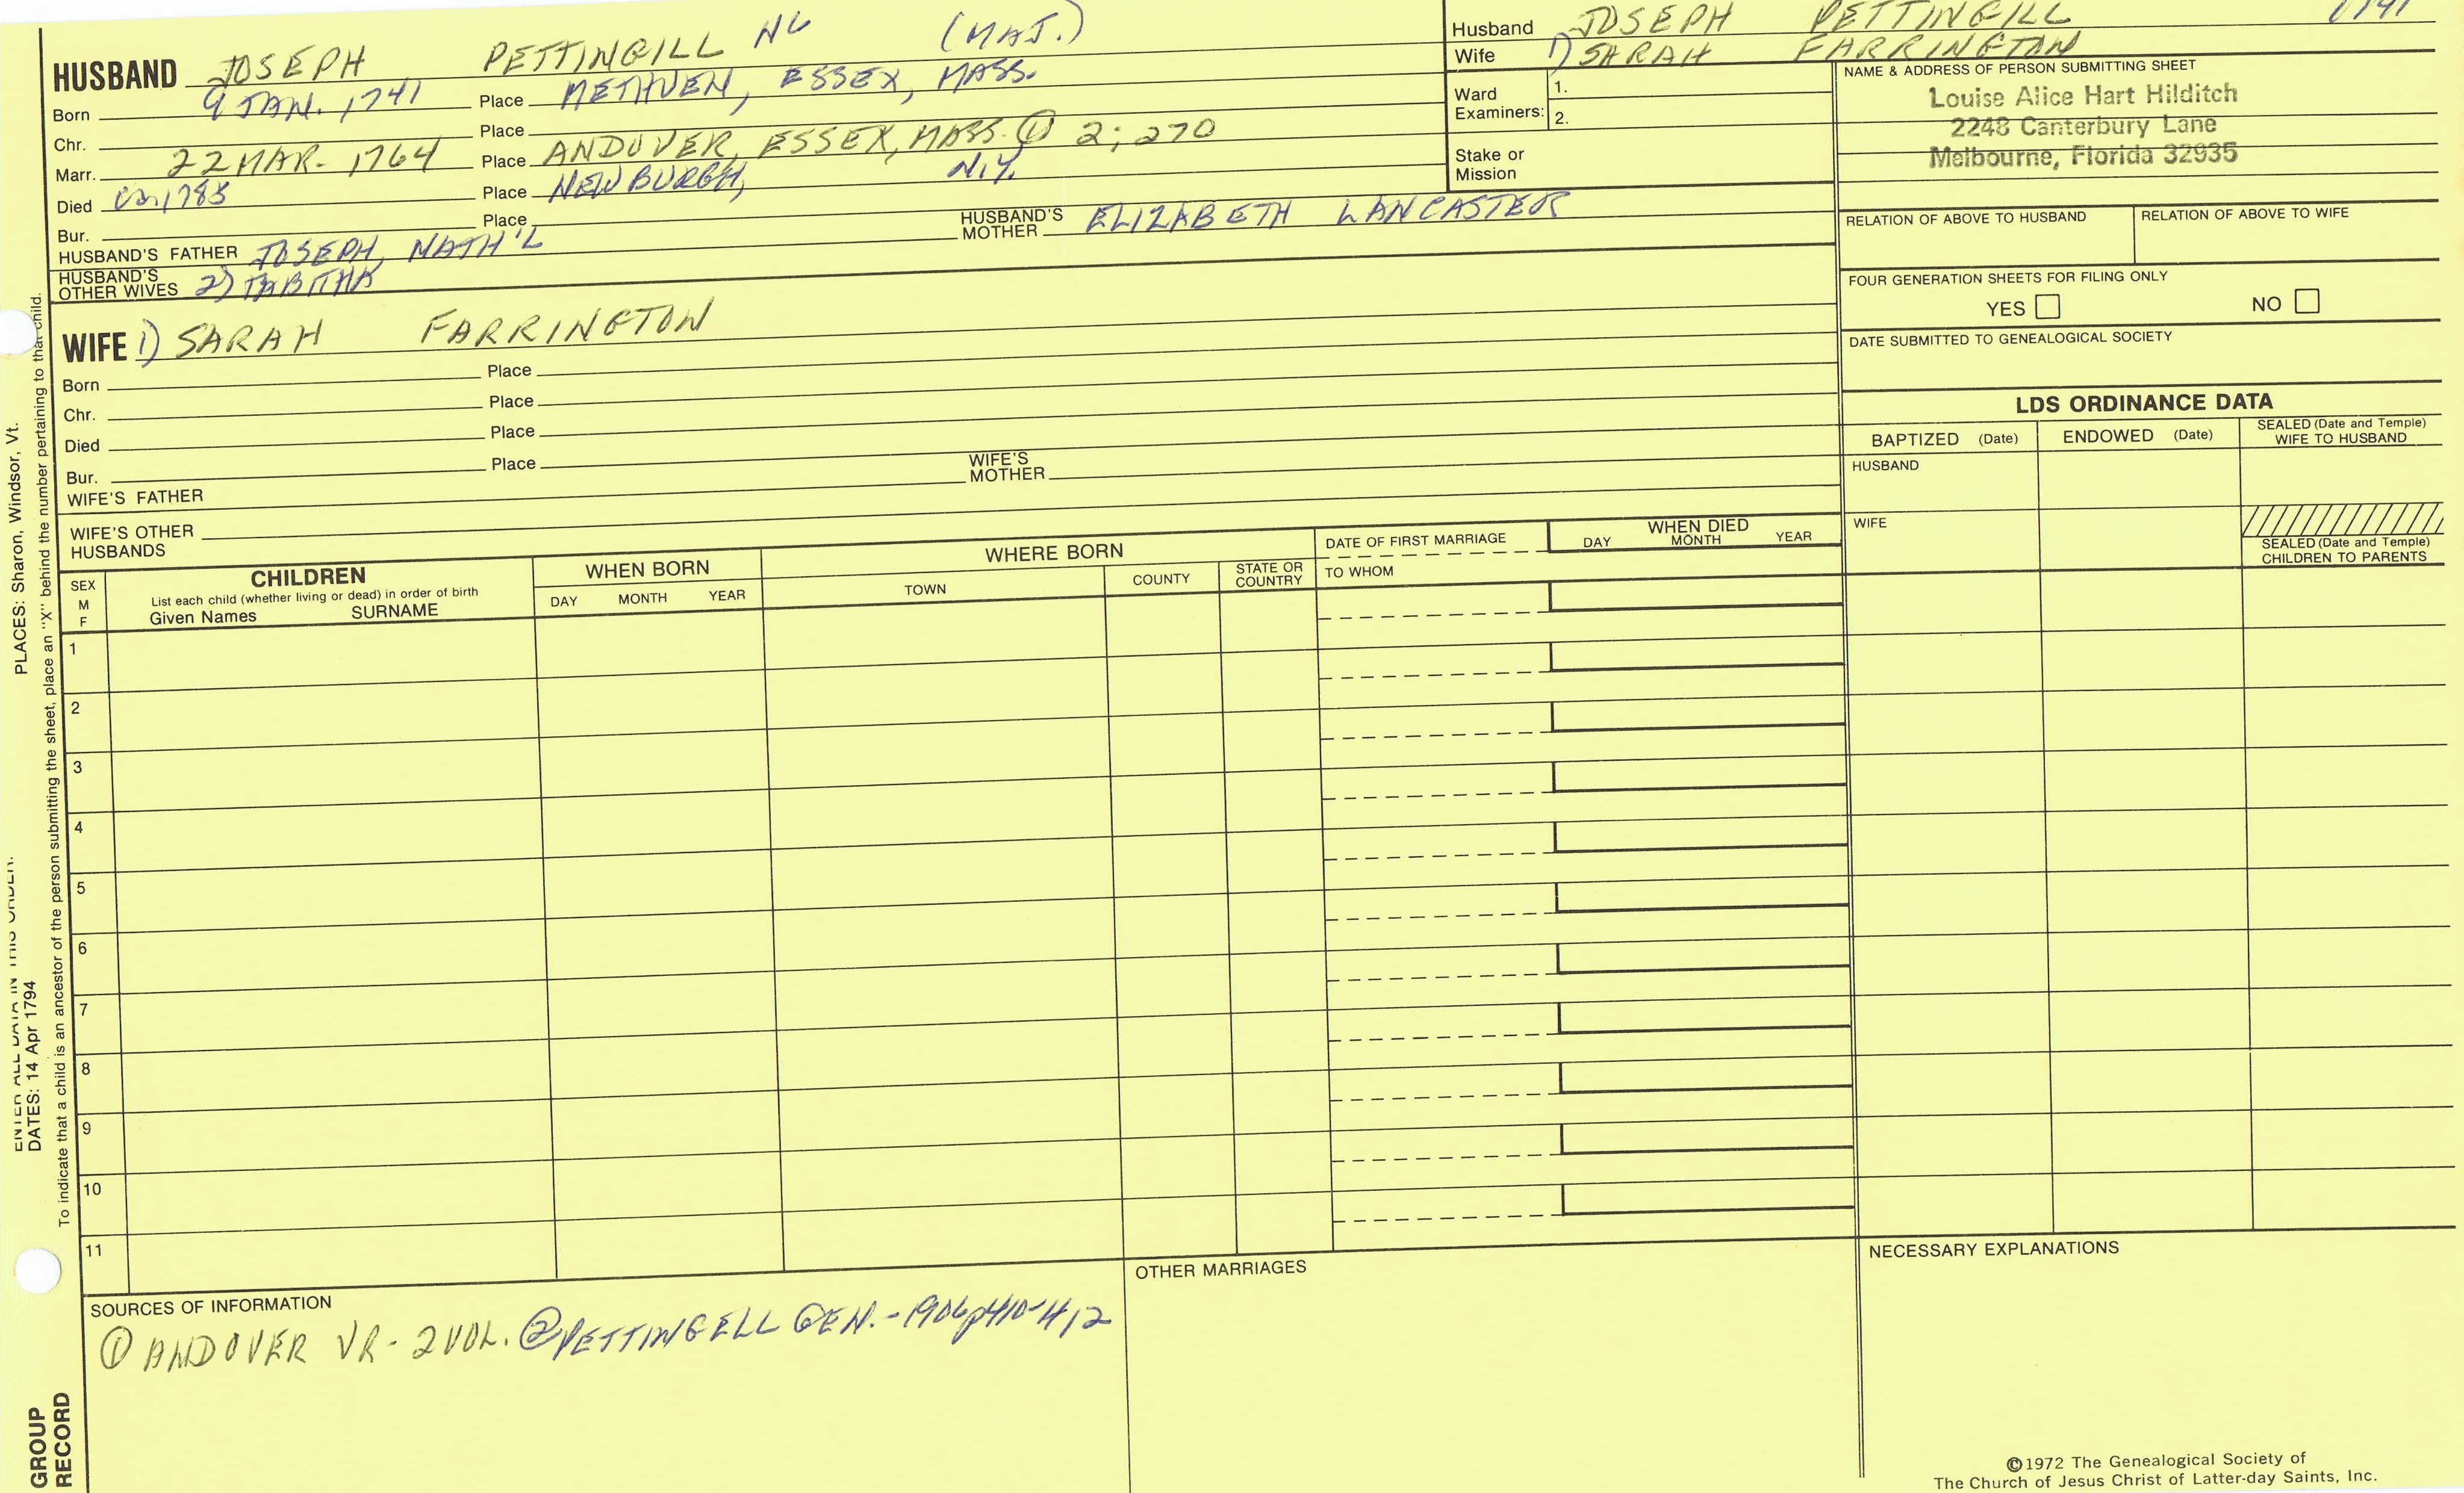 HUSBAND JOSEPH PETTINGILL (MAJ.)
Born 9 JAN. 1741 Place METHUEN, ESSEX, MASS.
Chr. Place
Marr. 22 MAR- 1764 Place ANDOVER, ESSEX, MASS. ① 2; 270
Died Place NEWBURGH, N.Y.
Bur. Place
HUSBAND'S FATHER JOSEPH, NATH'L HUSBAND'S MOTHER ELIZABETH LANCASTER
HUSBAND'S OTHER WIVES 2) TABITHA
WIFE 1) SARAH FARRINGTON
Born Place
Chr. Place
Died Place
Bur. Place
WIFE'S FATHER WIFE'S MOTHER
WIFE'S OTHER HUSBANDS
Husband JOSEPH PETTINGILL 1741
Wife 1) SARAH FARRINGTON
Ward Examiners: 1.
2.
Stake or Mission
NAME & ADDRESS OF PERSON SUBMITTING SHEET
Louise Alice Hart Hilditch
2248 Canterbury Lane
Melbourne, Florida 32935
RELATION OF ABOVE TO HUSBAND RELATION OF ABOVE TO WIFE
FOUR GENERATION SHEETS FOR FILING ONLY
YES NO
DATE SUBMITTED TO GENEALOGICAL SOCIETY
LDS ORDINANCE DATA
BAPTIZED (Date) ENDOWED (Date) SEALED (Date and Temple) WIFE TO HUSBAND
HUSBAND
WIFE
SEALED (Date and Temple) CHILDREN TO PARENTS
SEX M F
CHILDREN
List each child (whether living or dead) in order of birth
Given Names SURNAME
WHEN BORN
DAY MONTH YEAR
WHERE BORN
TOWN COUNTY STATE OR COUNTRY
DATE OF FIRST MARRIAGE
TO WHOM
WHEN DIED
DAY MONTH YEAR
1
2
3
4
5
6
7
8
9
10
11
SOURCES OF INFORMATION
① ANDOVER VR- 2 VOL. ② PETTINGELL GEN.-1906 p410-412
OTHER MARRIAGES
NECESSARY EXPLANATIONS
©1972 The Genealogical Society of
The Church of Jesus Christ of Latter-day Saints, Inc.
PLACES: Sharon, Windsor, Vt.
ENTER ALL DATA IN THIS ORDER:
DATES: 14 Apr 1794
To indicate that a child is an ancestor of the person submitting the sheet, place an "X" behind the number pertaining to that child.
GROUP
RECORD